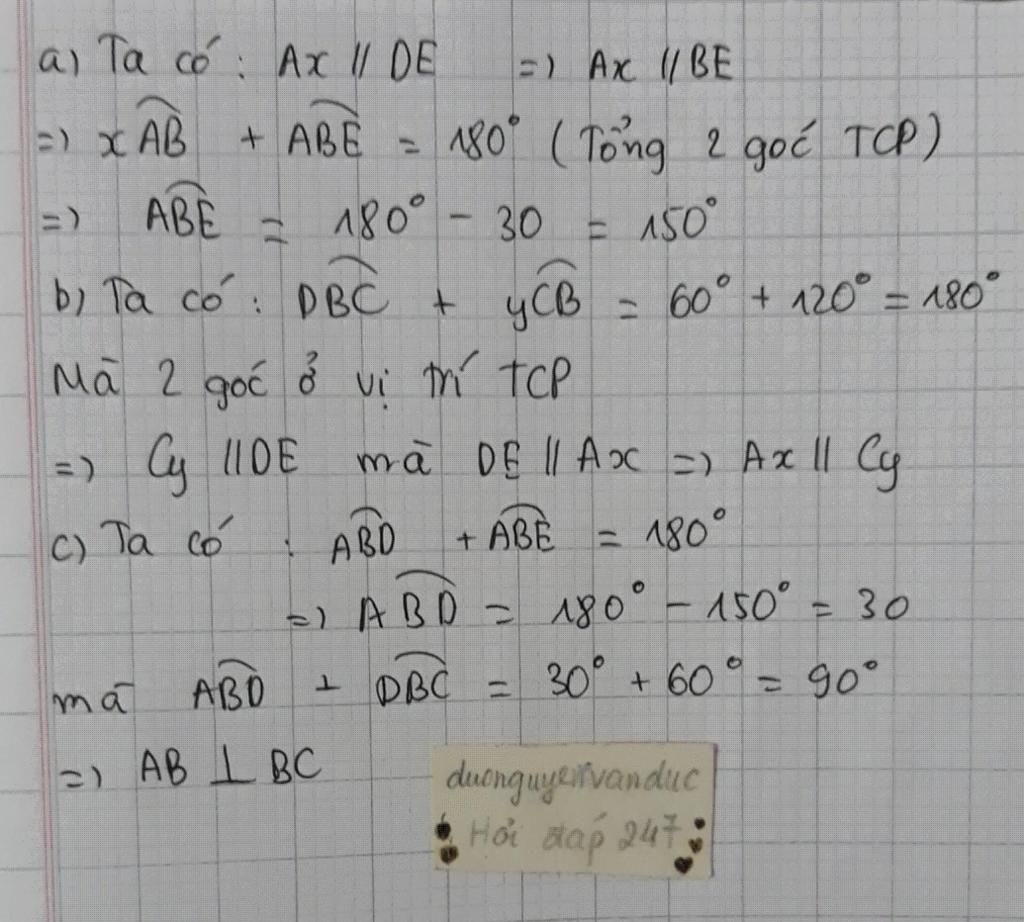 a) Ta có : Ax // DE => Ax // BE
=> xAB + ABE = 180° (Tổng 2 góc TCP)
=> ABE = 180° - 30 = 150°
b) Ta có : DBC + yCB = 60° + 120° = 180°
Mà 2 góc ở vị trí TCP
=> Cy // DE mà DE // Ax => Ax // Cy
c) Ta có : ABD + ABE = 180°
=> ABD = 180° - 150° = 30
mà ABD + DBC = 30° + 60° = 90°
=> AB ⊥ BC
duonguyenvanduc
Hỏi đáp 247